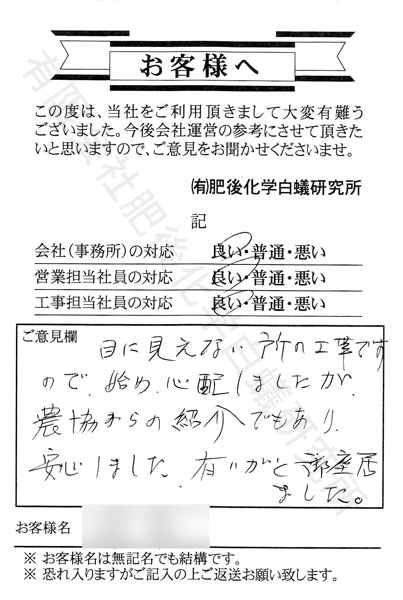 お客様へ
この度は、当社をご利用頂きまして大変有難う
ございました。今後会社運営の参考にさせて頂きた
いと思いますので、ご意見をお聞かせくださいませ。
㈲肥後化学白蟻研究所
記
会社(事務所)の対応 良い・普通・悪い
営業担当社員の対応 良い・普通・悪い
工事担当社員の対応 良い・普通・悪い
ご意見欄
目に見えない所の工事です
ので、始め、心配しましたが、
農協からの紹介でもあり、
安心しました。有りがとう御座居
ました。
お客様名
※ お客様名は無記名でも結構です。
※ 恐れ入りますがご記入の上ご返送お願い致します。
有限会社肥後化学白蟻研究所